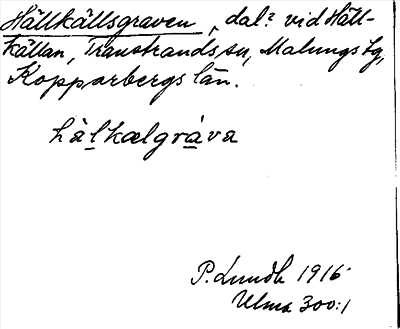 Hällkällsgraven, "dal" vid Häll-
källan, Transtrands sn, Malungs tg,
Kopparbergs län.
hälkælgráva
P. Lundh 1916
Ulma 300:1